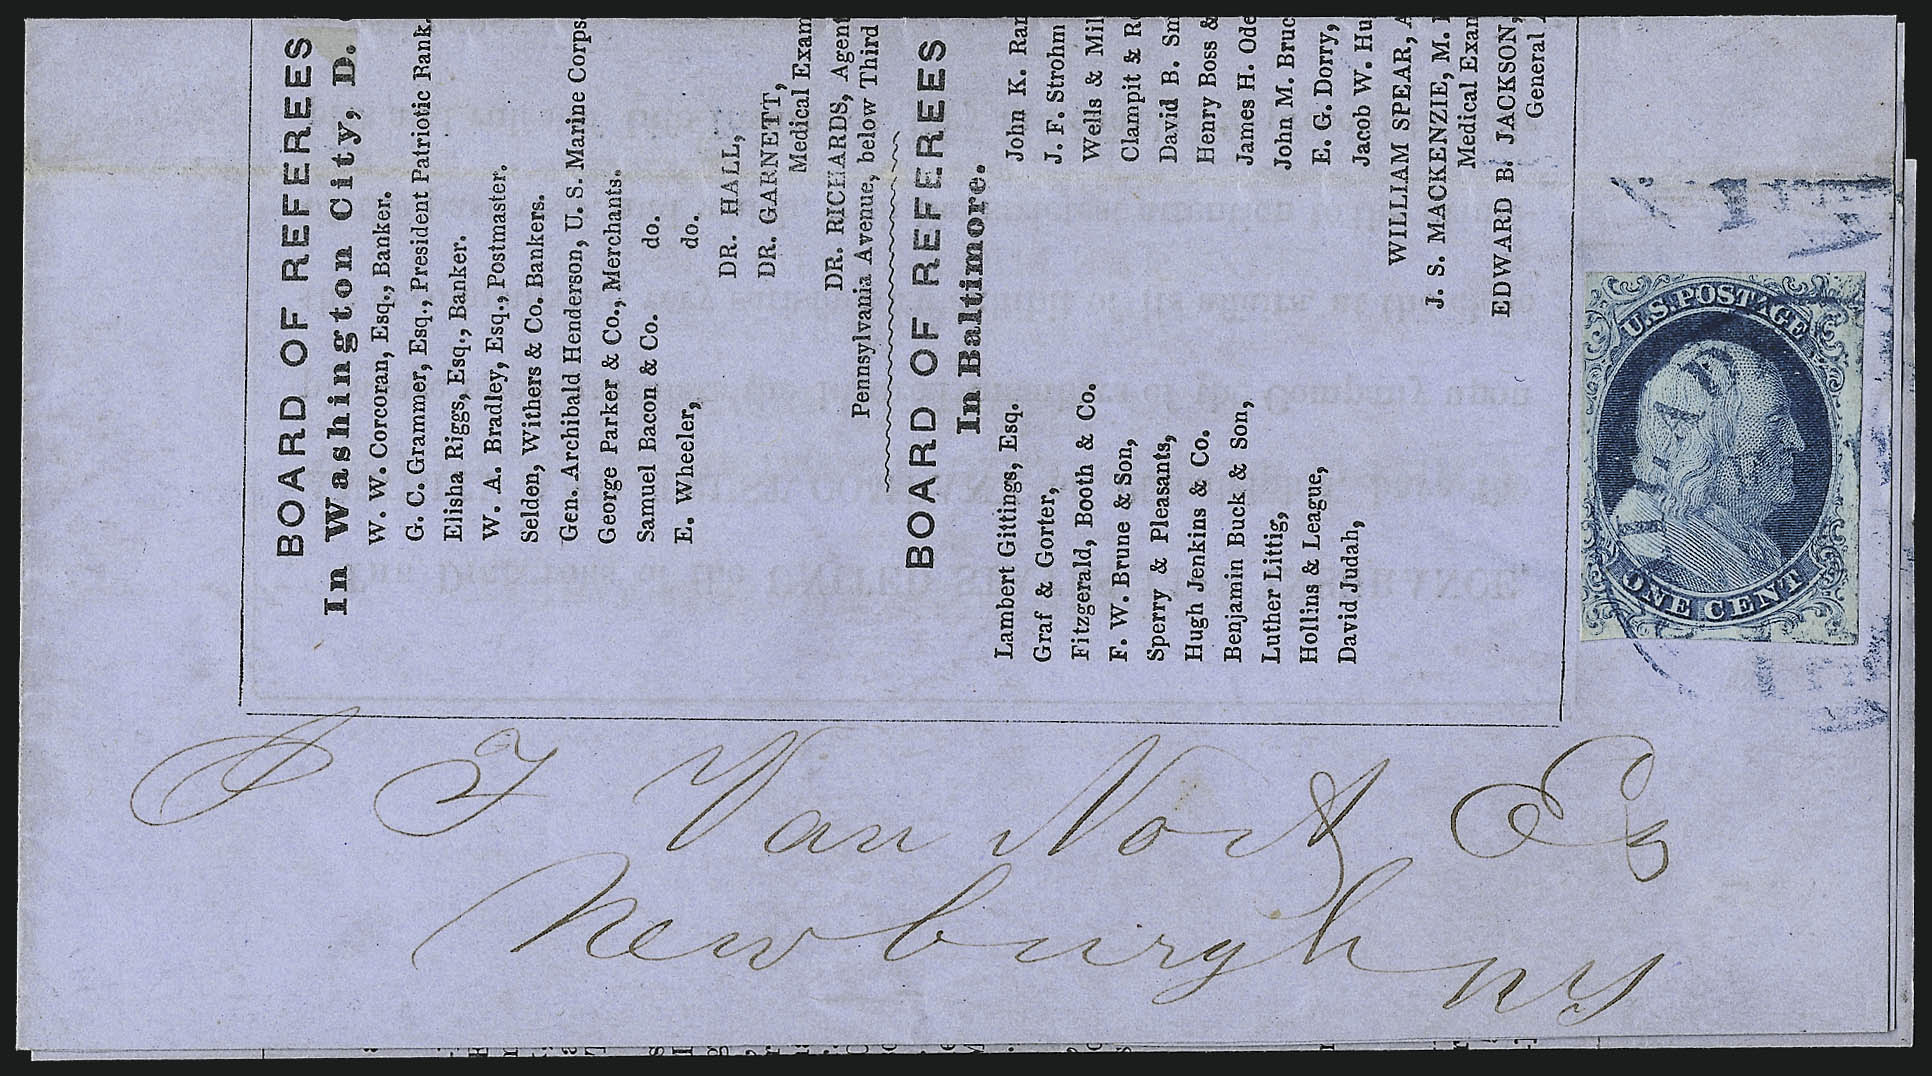 BOARD OF REFEREES
In Washington City, D.
W. W. Corcoran, Esq., Banker.
G. C. Grammer, Esq., President Patriotic Bank.
Elisha Riggs, Esq., Banker.
W. A. Bradley, Esq., Postmaster.
Selden, Withers & Co. Bankers.
Gen. Archibald Henderson, U. S. Marine Corps
George Parker & Co., Merchants.
Samuel Bacon & Co. do.
E. Wheeler, do.
DR. HALL,
DR. GARNETT,
Medical Exam
DR. RICHARDS, Agent
Pennsylvania Avenue, below Third
BOARD OF REFEREES
In Baltimore.
Lambert Gittings, Esq.
Graf & Gorter,
Fitzgerald, Booth & Co.
F. W. Brune & Son,
Sperry & Pleasants,
Hugh Jenkins & Co.
Benjamin Buck & Son,
Luther Littig,
Hollins & League,
David Judah,
John K. Ran
J. F. Strohm
Wells & Mil
Clampit & R
David B. Sm
Henry Boss &
James H. Ode
John M. Bruc
E. G. Dorry,
Jacob W. Hu
WILLIAM SPEAR, A
J. S. MACKENZIE, M.
Medical Exan
EDWARD B. JACKSON,
General
U.S. POSTAGE
ONE CENT
Van Nort Esq
Newburgh
NY